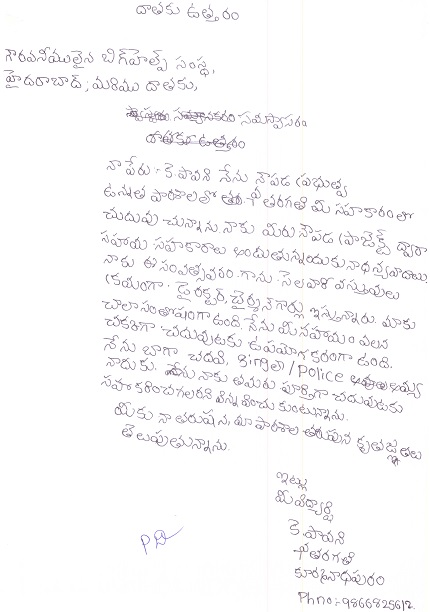 దాతకు ఉత్తరం
గౌరవనీయులైన బిగ్‌హెల్ప్ సంస్థ,
హైదరాబాద్, మరియు దాతకు,
నమస్కారం
దాతకు ఉత్తరం
నా పేరు కె.పావని నేను నౌపడ ప్రభుత్వ
ఉన్నత పాఠశాలలో తరగతి మీ సహకారంతో
చదువు చున్నాను. నాకు మీరు నౌపడ ప్రాజెక్ట్ ద్వారా
సహాయ సహకారాలు అందుతున్నయకు నా ధన్యవాదాలు
నాకు ఈ సంవత్సవరం గాను నెలవారి వస్తువులు
క్రమంగా డైరక్టర్, చైర్మన్ గార్లు ఇస్తున్నారు. మాకు
చాలా సంతోషంగా ఉంది. నేను మీ సహాయం వలన
చక్కగా చదువుటకు ఉపయోగకరంగా ఉంది.
నేను బాగా చదివి, Police
నాకు తమరు పూర్తిగా చదువుటకు
సహకరించగలరని విన్నవించు కుంటున్నాను.
మీకు నా తరుపున, మా పాఠశాల తరుపున కృతజ్ఞతలు
తెలుపుతున్నాను.
ఇట్లు
మీ విద్యార్థి
కె.పావని
తరగతి
కూర్మనాధపురం
Ph no:- 9866825612